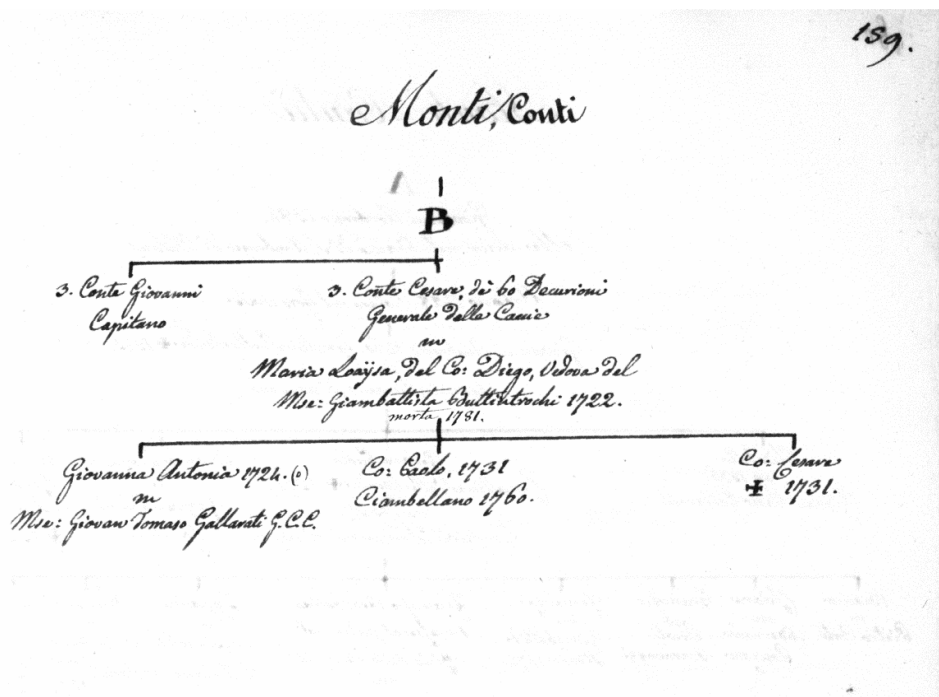 159.
Monti, Conti
B
3. Conte Giovanni
Capitano
3. Conte Cesare, de 60 Decurioni
Generale delle Caccie
m
Maria Loaÿsa, del Co: Diego, Vedova del
Mse: Giambattista 1722.
morta 1781.
Giovanna Antonia 1724. (o)
m
Mse: Giovan Tomaso Gallarati G.C.C.
Co: Paolo, 1731
Ciambellano 1760.
Co: Cesare
✠ 1731.